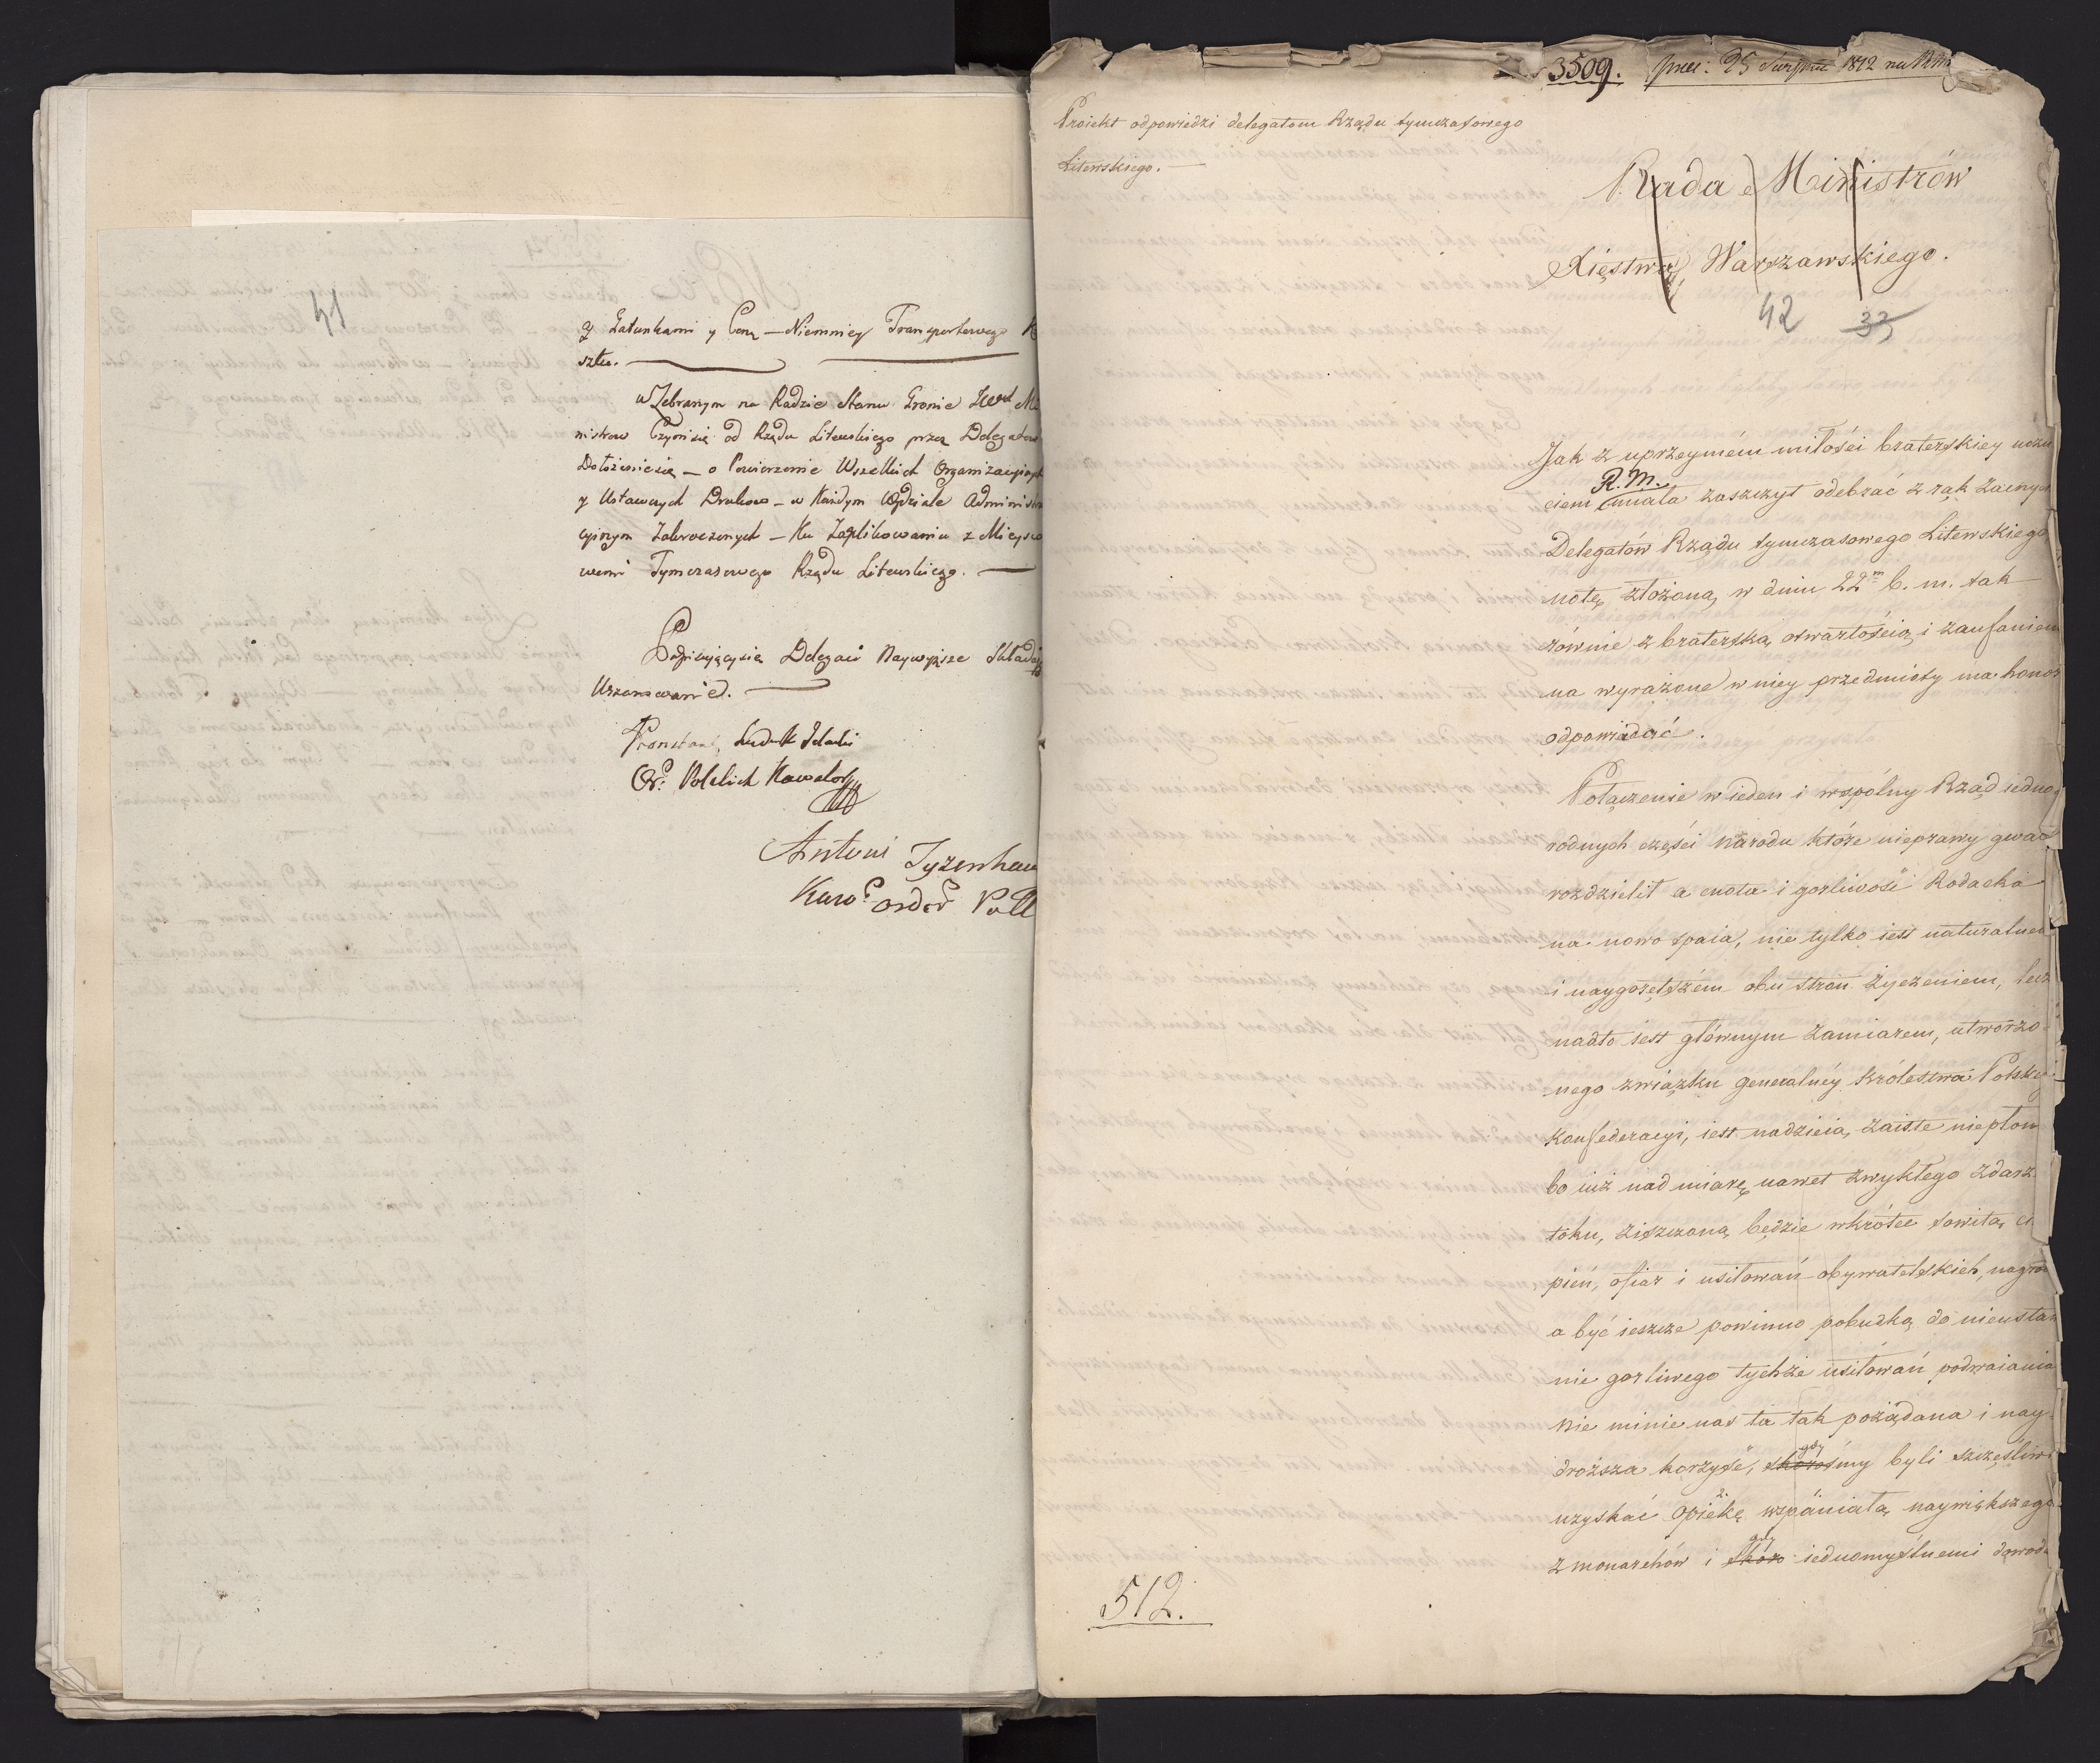 41
z Gatunkami y Ceną – Niemniey Transportowego
sztu.
w Zebranym na Radzie Stanu Gronie
nistrow Czyni się od Rządu Litewskiego przez Delegatow
Dołożenie się – o Powierzenie Wszelkich Organizacyinych
y Ustawczych Drukow – w Każdym Wydziale Administra
cyinym – Ku z Mieysco
wemi Tymczasowego Rządu Litewskiego.
Podpisujący się Delegaci Naywyższe Składaią
Uszanowanie.
Or: Polskich Kawaler
Antoni Tyzenhau
Kawr order Poll
3509. 25 Sierpnia 1812
Proiekt odpowiedzi delegatom Rządu tymczasowego
Litewskiego.
Rada Ministrów
Xięstwa Warszawskiego.
42 33
Jak z uprzeymém miłości braterskiey uczu
R. M.
ciem miała zaszczyt odebrać z rąk zacnych
Delegatów Rządu tymczasowego Litewskiego
notę złożoną w dniu 22m b. m. tak
równie z braterską otwartością i zaufaniem
na wyrażone w niey przedmioty ma honor
odpowiadać.
Połączenie w ieden i wspólny Rząd iedno
rodnych części narodu które nieprawy gwałt
rozdzielił a cnota i gorliwość Rodacka
na nowo spaia, nie tylko iest naturalnem
i naygorętszém obu stron życzeniem, lecz
nadto iest głównym zamiarem, utworzo
nego związku generalnéy Królestwa Polskie
Konfederacyi, iest nadzieią zaiste niepłon
bo iuż nad miarę nawet zwykłego zdarz
toku, ziszczoną będzie wkrótce sowitą ci
pień, ofiar i usiłowań obywatelskich, nagro
a być ieszcze powinno pobudką do nieustan
nie gorliwego tychże usiłowań podwaiania
Nie minie nas ta tak pożądana i nay
gdy
droższa korzyść, skorośmy byli szczęśliwi
uzyskać opiekę wspaniałą naywiększego
gdy
z monarchów i skoro iednomyślnemi dowod
512.